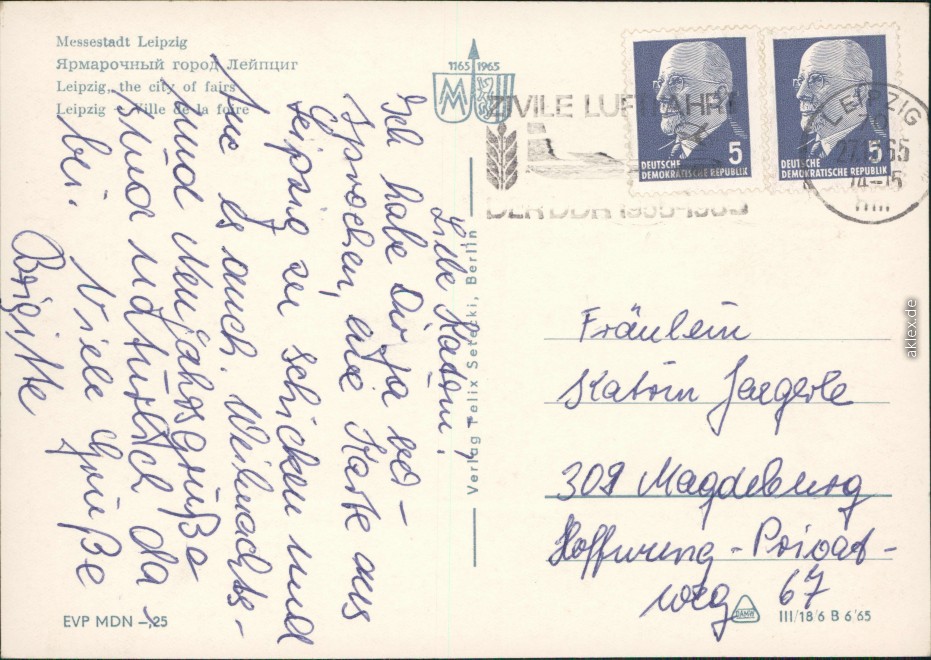 Messestadt Leipzig
Ярмарочный город Лейпциг
Leipzig, the city of fairs
Leipzig - Ville de la foire
1165 1965
MM
ZIVILE LUFTFAHRT
DER DDR 1955-1965
5
DEUTSCHE
DEMOKRATISCHE REPUBLIK
5
DEUTSCHE
DEMOKRATISCHE REPUBLIK
LEIPZIG
65
Liebe Katrin!
Ich habe Dir ja ver-
sprochen, eine Karte aus
Leipzig zu schicken und
nun ist es auch
Weihnachts-
und Neujahrsgrüße
sind natürlich da-
bei. Viele Grüße
Brigitte
Verlag Felix Setecki, Berlin
Fräulein
Katrin Jaegerle
309 Magdeburg
Hoffnung-Privat-
weg 67
EVP MDN -,25
DAMW
III/18/6 B 6/65
aklex.de